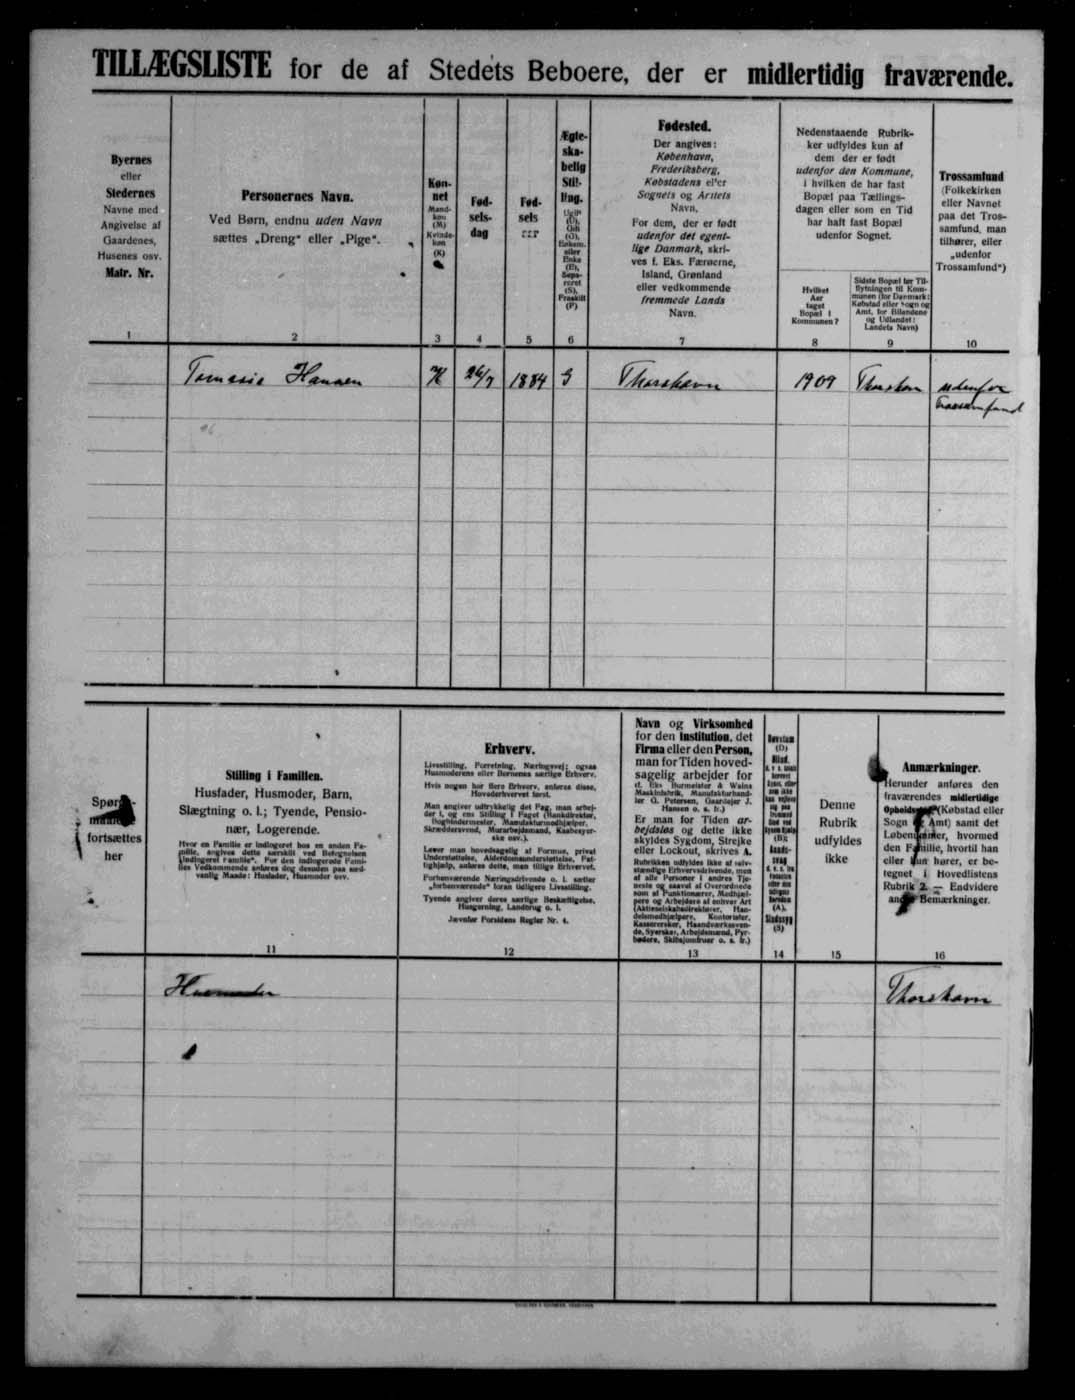 TILLÆGSLISTE for de af Stedets Beboere, der er midlertidig fraværende.
Byernes
eller
Stedernes
Navne med
Angivelse af
Gaardenes,
Husenes osv.
Matr. Nr.
1
Personernes Navn.
Ved Børn, endnu uden Navn
sættes „Dreng“ eller „Pige“.
2
Køn-
net
Mand-
køn
(M)
Kvinde-
køn
(K)
3
Fød-
sels-
dag
4
Fød-
sels
5
Ægte-
ska-
belig
Stil-
ling.
Ugift
(U),
Gift
(G),
Enkem.
eller
Enke
(E),
Sepa-
reret
(S),
Fraskilt
(F)
6
Fødested.
Der angives:
København,
Frederiksberg,
Købstadens eller
Sognets og Amtets
Navn.
For dem, der er født
udenfor det egent-
lige Danmark, skri-
ves f. Eks. Færøerne,
Island, Grønland
eller vedkommende
fremmede Lands
Navn.
7
Nedenstaaende Rubrik-
ker udfyldes kun af
dem der er født
udenfor den Kommune,
i hvilken de har fast
Bopæl paa Tællings-
dagen eller som en Tid
har haft fast Bopæl
udenfor Sognet.
Hvilket
Aar
taget
Bopæl i
Kommunen?
8
Sidste Bopæl før Til-
flytningen til Kom-
munen (for Danmark:
Købstad eller Sogn og
Amt, for Bilandene
og Udlandet:
Landets Navn)
9
Trossamfund
(Folkekirken
eller Navnet
paa det Tros-
samfund, man
tilhører, eller
„udenfor
Trossamfund“)
10
Tomasia Hansen K 26/7 1884 G Thorshavn 1909 Thorshavn udenfor
Trossamfund
Spørgs-
maalene
fortsættes
her
Stilling i Familien.
Husfader, Husmoder, Barn,
Slægtning o. l.; Tyende, Pensio-
nær, Logerende.
Hvor en Familie er indlogeret hos en anden Fa-
milie, angives dette særskilt ved Betegnelsen
„Indlogeret Familie“. For den indlogerede Fami-
lies Vedkommende anføres dog desuden paa sæd-
vanlig Maade: Husfader, Husmoder osv.
11
Erhverv.
Livsstilling, Forretning, Næringsvej; ogsaa
Husmoderens eller Børnenes særlige Erhverv.
Hvis nogen har flere Erhverv, anføres disse,
Hovederhvervet først.
Man angiver udtrykkelig det Fag, man arbej-
der i, og ens Stilling i Faget (Bankdirektør,
Bogbindermester, Manufakturmedhjælper,
Skræddersvend, Murarbejdsmand, Kaabesyer-
ske osv.).
Lever man hovedsagelig af Formue, privat
Understøttelse, Alderdomsunderstøttelse, Fat-
tighjælp, anføres dette, man tillige Erhvervet.
Forhenværende Næringsdrivende o. l. sætter
„forhenværende“ foran tidligere Livsstilling.
Tyende angiver deres særlige Beskæftigelse,
Husgerning, Landbrug o. l.
Jævnfør Forsidens Regler Nr. 4.
12
Navn og Virksomhed
for den Institution, det
Firma eller den Person,
man for Tiden hoved-
sagelig arbejder for
(f. Eks. Burmeister & Wains
Maskinfabrik, Manufakturhand-
ler O. Petersen, Gaardejer J.
Hansen o. s. fr.)
Er man for Tiden ar-
bejdsløs og dette ikke
skyldes Sygdom, Strejke
eller Lockout, skrives A.
Rubrikken udfyldes ikke af selv-
stændige Erhvervsdrivende, men
af alle Personer i andres Tje-
neste og saavel af Overordnede
som af Funktionærer, Medhjæl-
pere og Arbejdere af enhver Art
(Aktieselskabsdirektører, Han-
delsmedhjælpere, Kontorister,
Kassererskør, Haandværkssven-
de, Syersker, Arbejdsmænd, Fyr-
bødere, Skibsjomfruer o. s. fr.)
13
Døvstum
(D)
Blind,
(B)
Aands-
svag
(A),
Sindssyg
(S)
14
Denne
Rubrik
udfyldes
ikke
15
Anmærkninger.
Herunder anføres den
fraværendes midlertidige
Opholdssted (Købstad eller
Sogn og Amt) samt det
Løbenummer, hvormed
den Familie, hvortil han
eller hun hører, er be-
tegnet i Hovedlistens
Rubrik 2. — Endvidere
andre Bemærkninger.
16
Husmoder Thorshavn